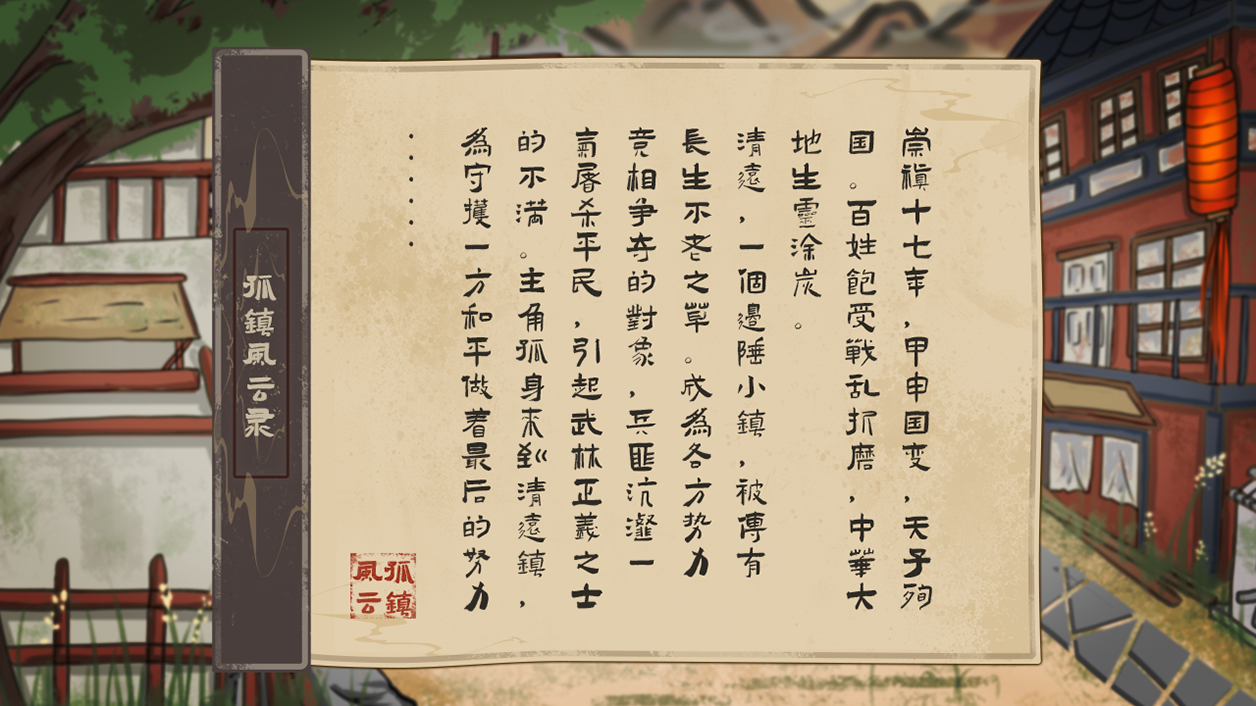 崇禎十七年，甲申国变，天子殉
国。百姓飽受戰乱折磨，中華大
地生靈涂炭。
清遠，一個邊陲小鎮，被傳有
長生不老之草。成為各方势力
竞相争夺的對象，兵匪沆瀣一
氣屠杀平民，引起武林正義之士
的不満。主角孤身来到清遠鎮，
為守擭一方和平做着最后的努力
……
孤鎮風云
孤鎮風云录